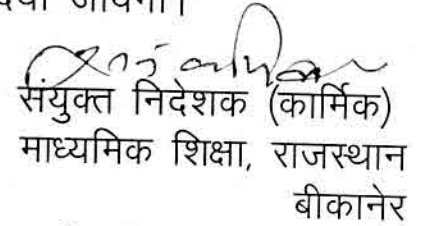 जायेगा।
संयुक्त निदेशक (कार्मिक)
माध्यमिक शिक्षा, राजस्थान
बीकानेर